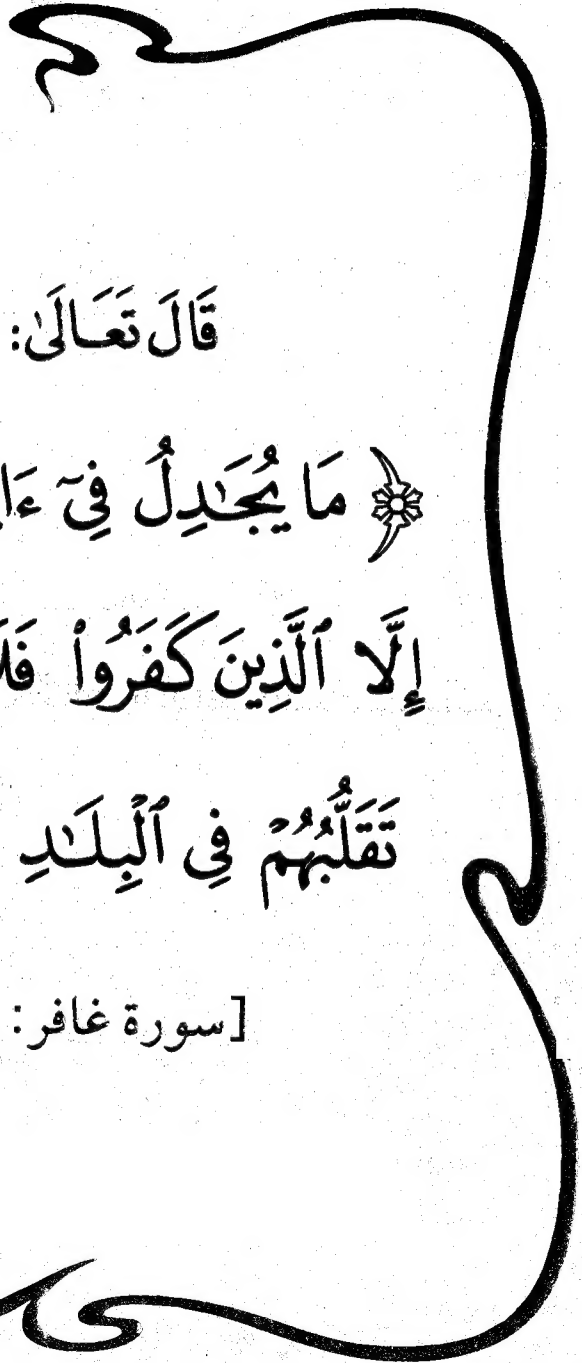 قَالَ تَعَالَىٰ:
﴿ مَا يُجَٰدِلُ فِىٓ
إِلَّا ٱلَّذِينَ كَفَرُوا۟
تَقَلُّبُهُمْ فِى ٱلْبِلَٰدِ
[سورة غافر: